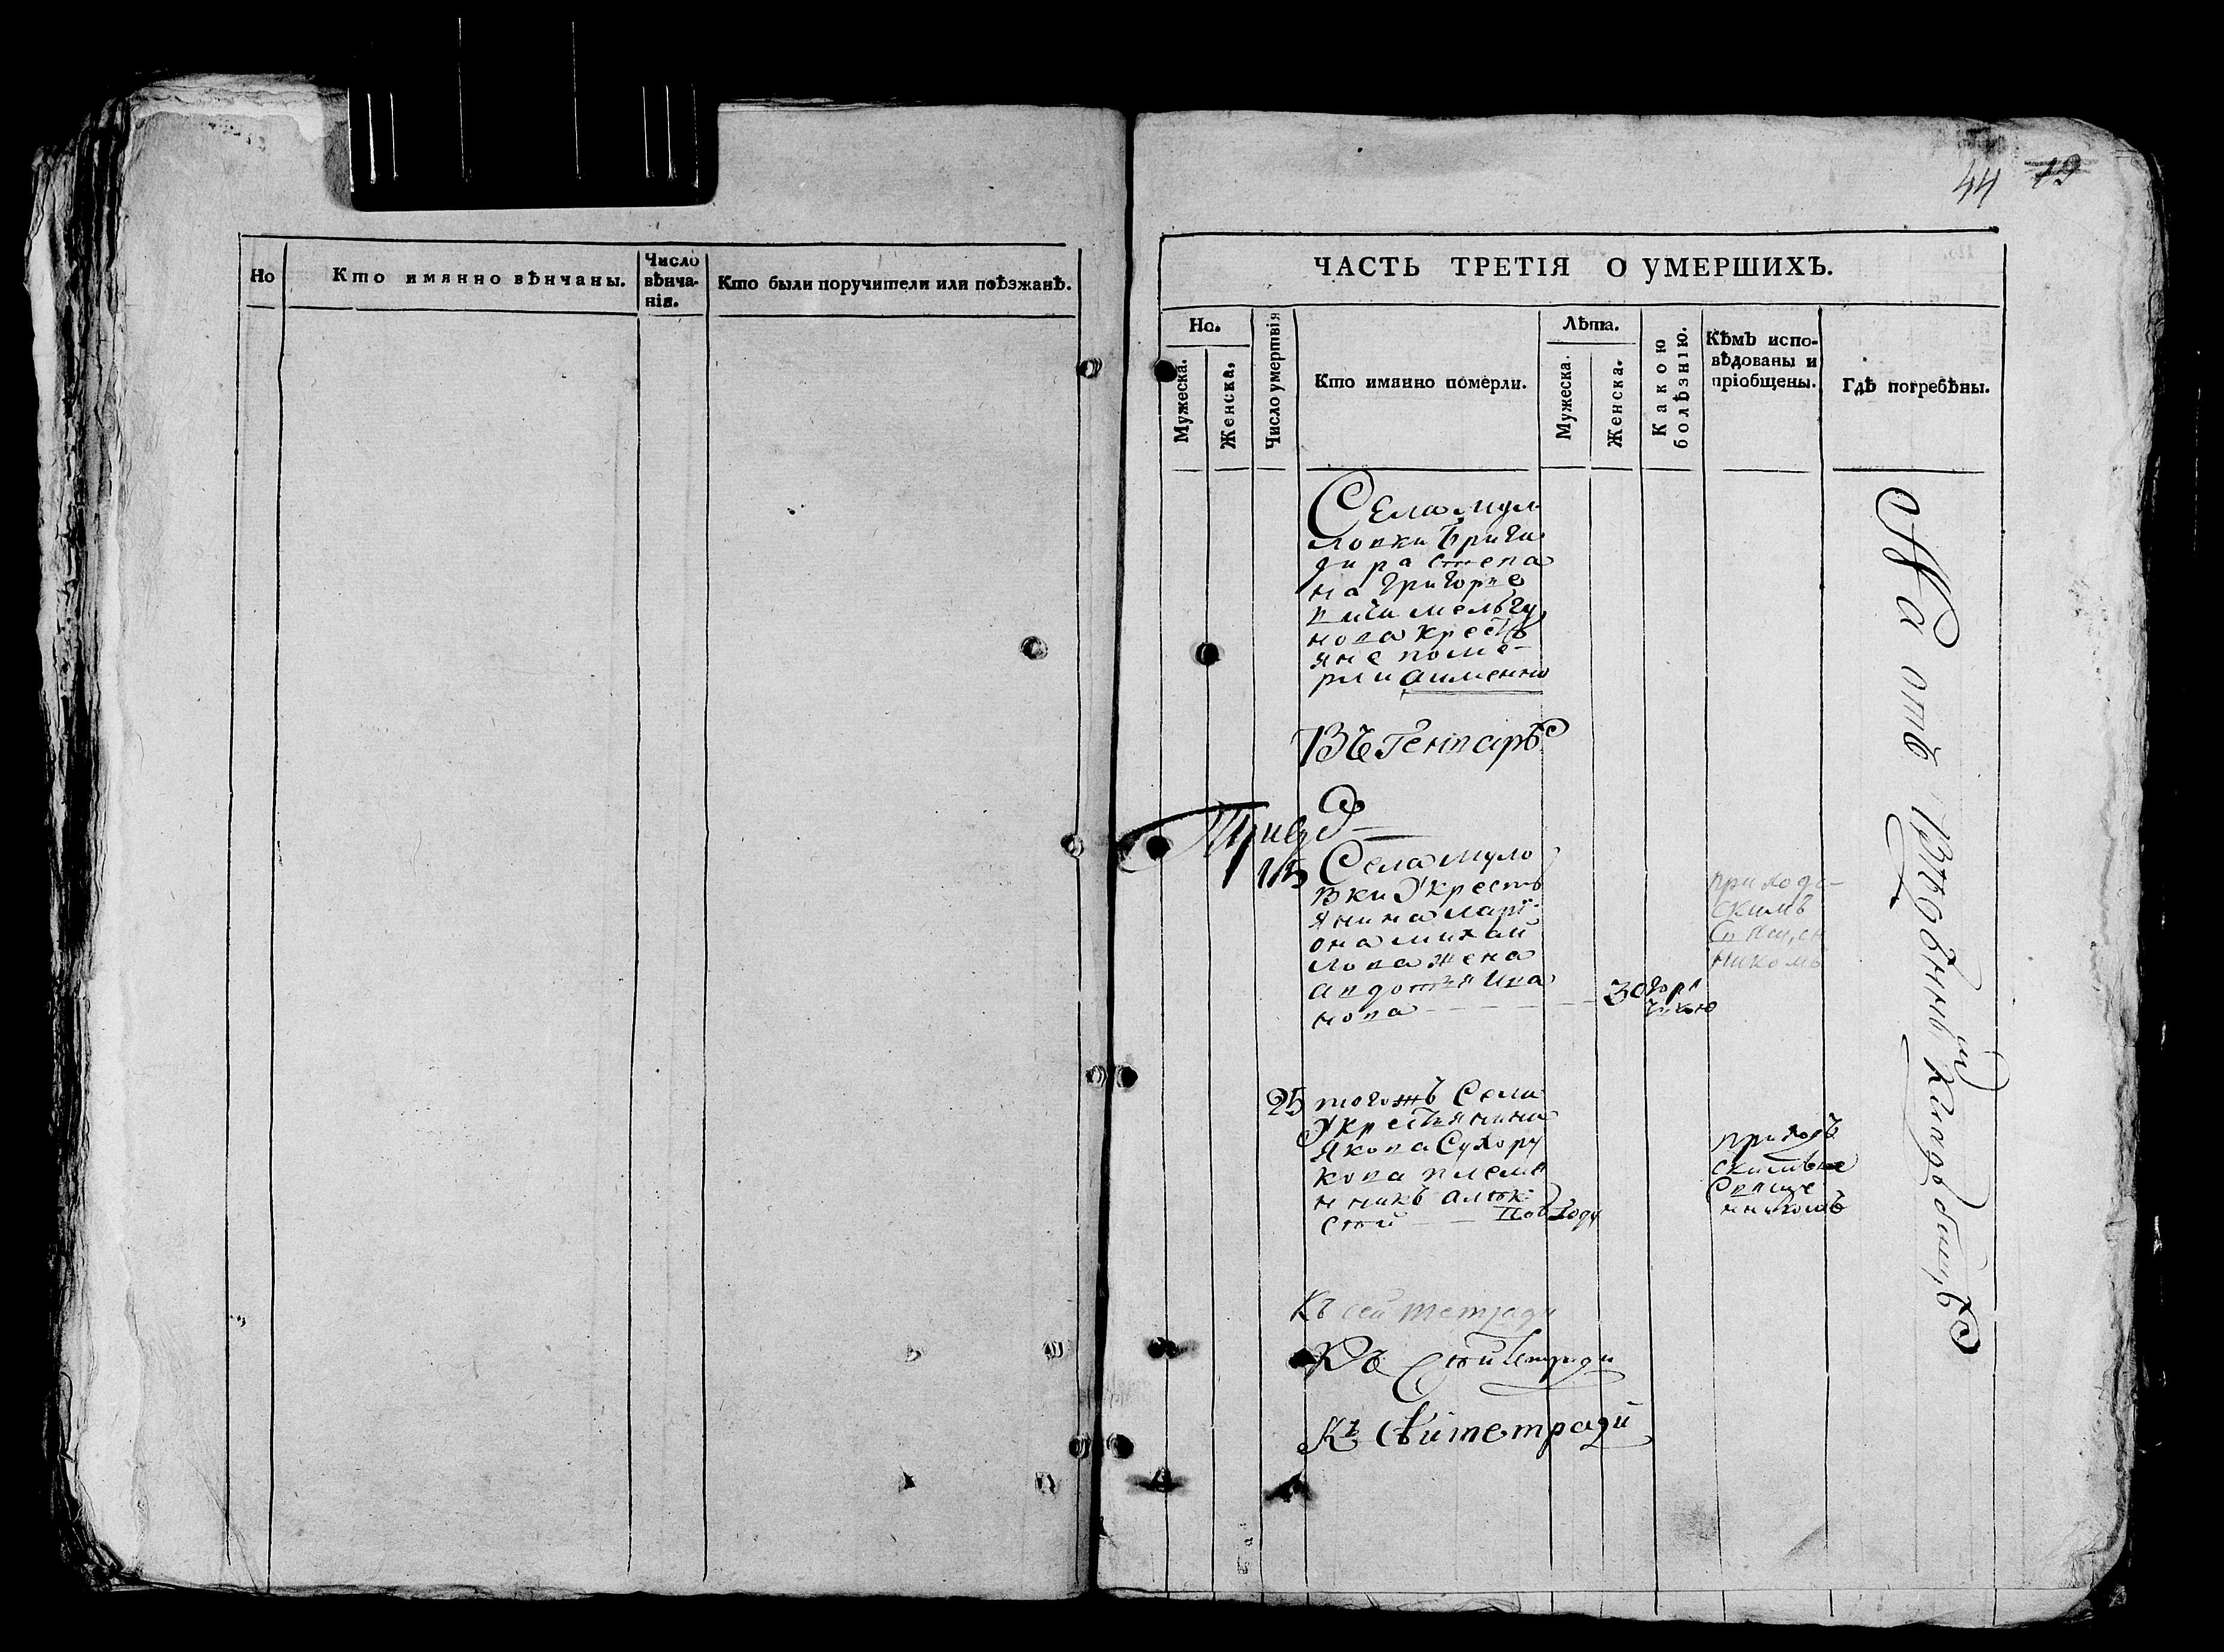 Но
Кто имянно вѣнчаны.
Число
вѣнча-
нія.
Кто были поручители или поѣзжанѣ.
44 19
ЧАСТЬ ТРЕТІЯ О УМЕРШИХЪ.
Но.
Мужеска.
Женска.
Число умертвія
Кто имянно померли.
Лѣта.
Мужеска.
Женска.
Какою
болѣзнію.
Кѣмъ испо-
вѣдованы и
пріобщены.
Гдѣ погребѣны.
Села мул
ловки Брига
дира Степа
на Григорье
вича мельгу
нова крестъ
яне поме-
рли а именно
Въ Генваре
15 Села муло
вки У крестъ
янина Ларі-
она михаи
лова жена
авдотья Ива
нова
30
горя
чкою
приход-
скимъ
Священ
никомъ
25 тогожъ Села
У крестьянина
Якова Сухору
кова племя
нникъ алек
сей
приходъ
скимъ же
Свяще
нникомъ
На отвѣденнѣм Кладбищѣ
Къ сей тетради
Къ сей тетради
Къ сей тетради